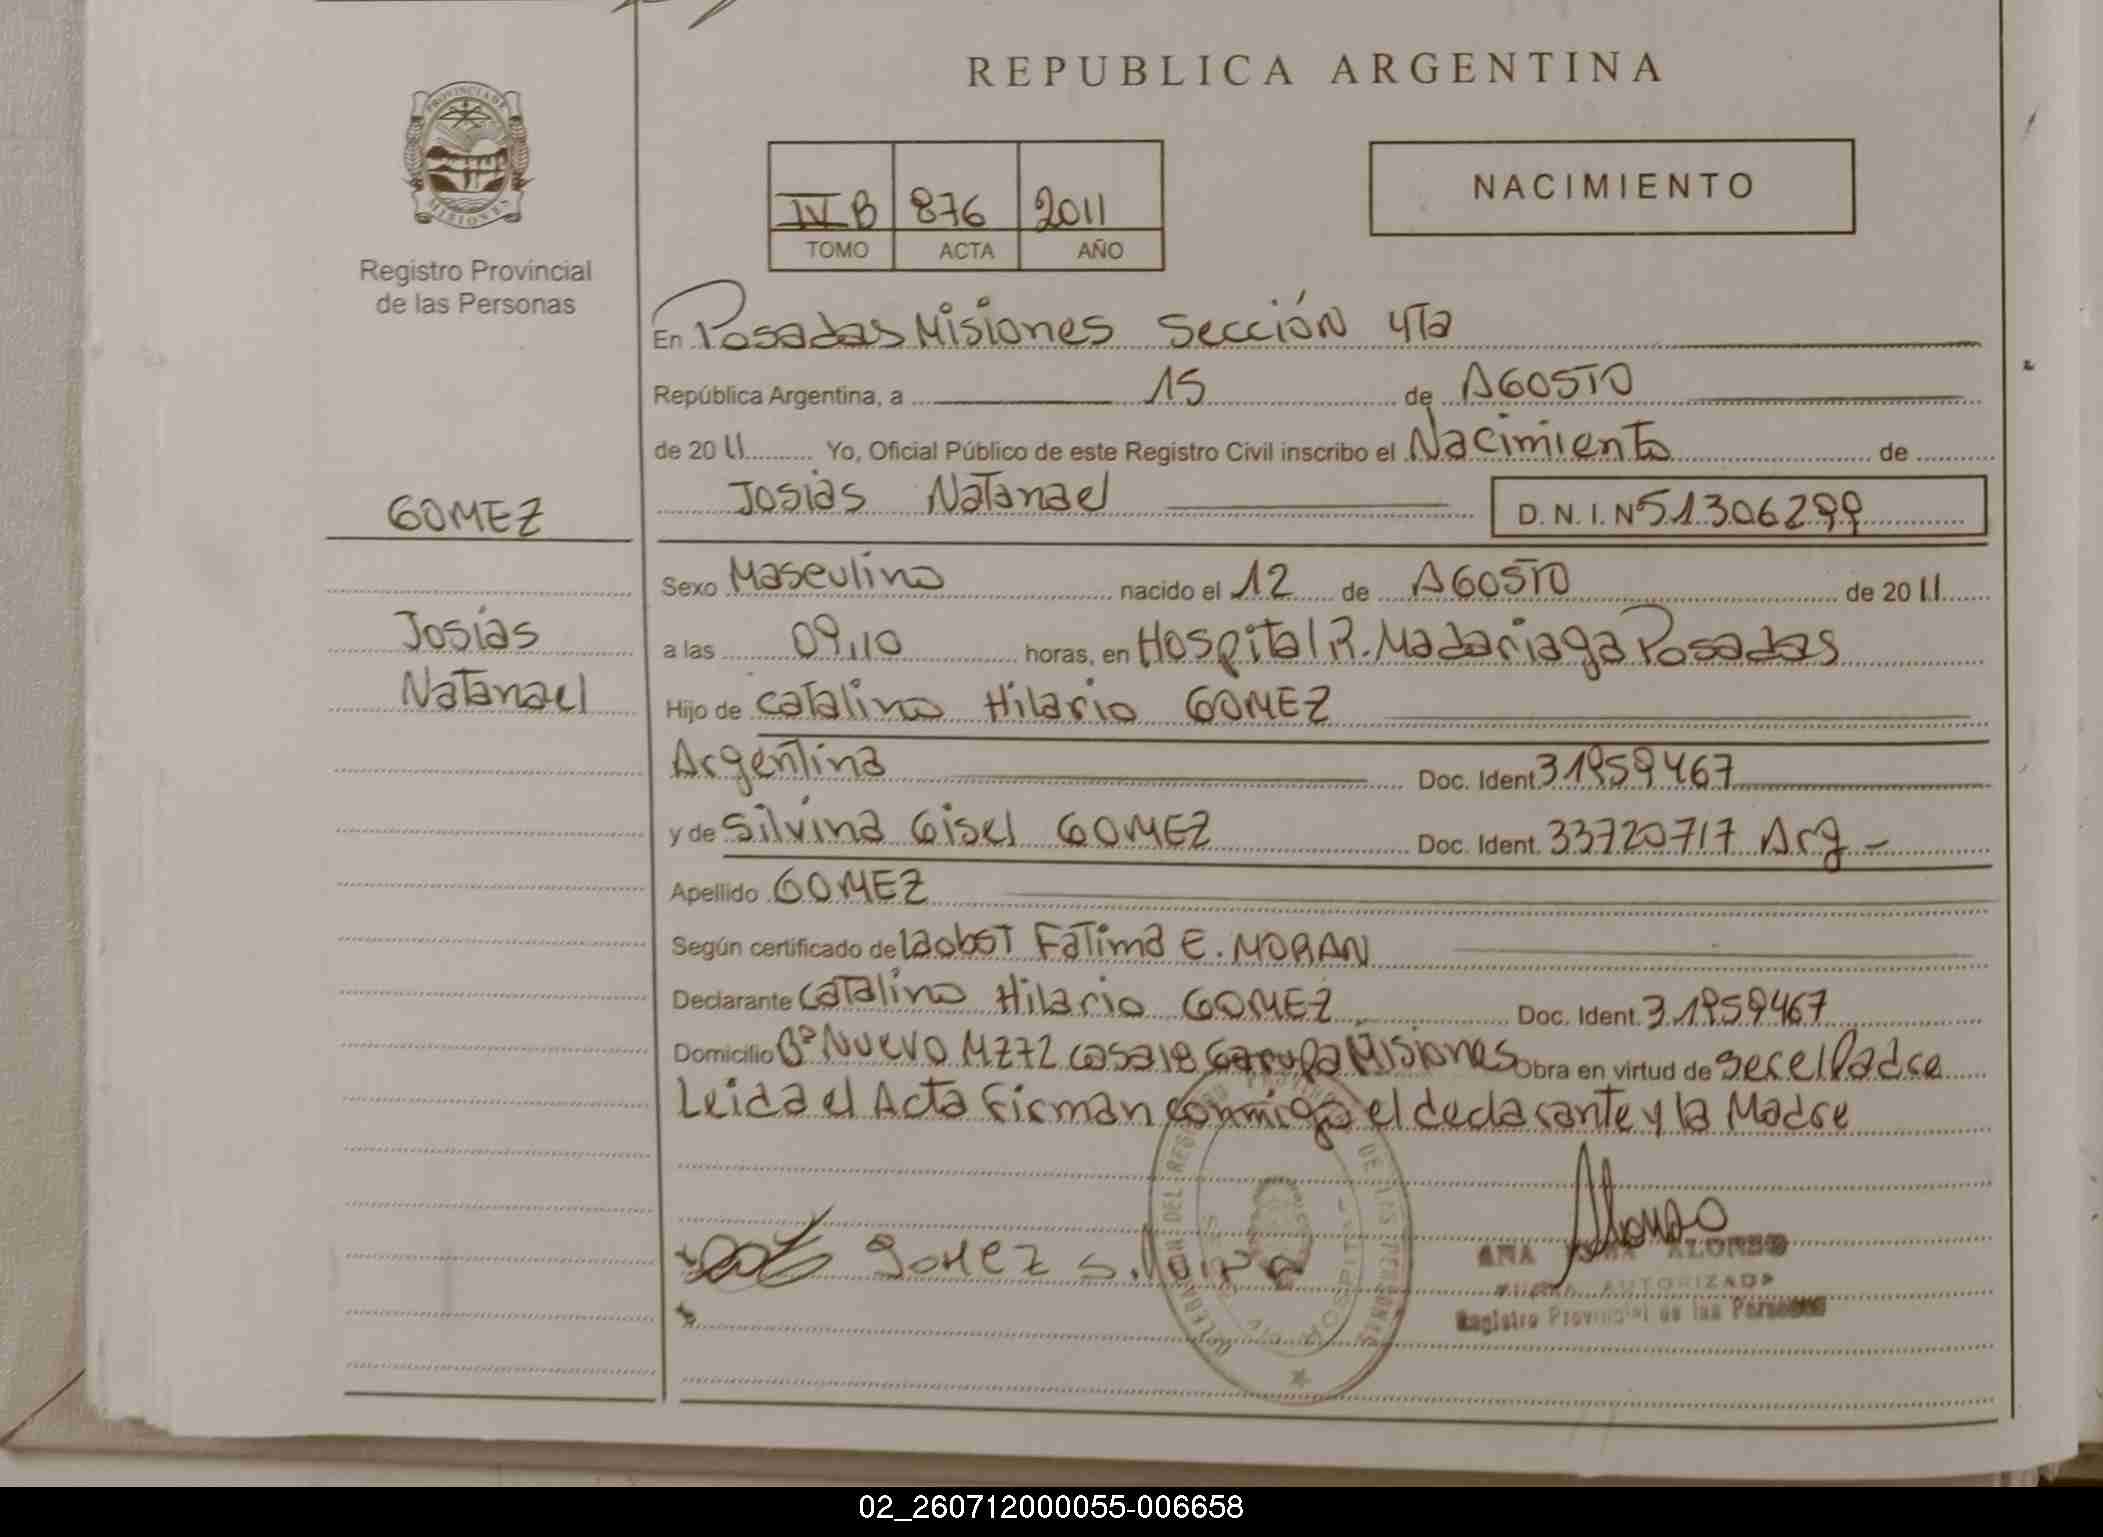 REPUBLICA ARGENTINA
PROVINCIA DE
MISIONES
Registro Provincial
de las Personas
IV B 876 2011
TOMO ACTA AÑO
NACIMIENTO
En Posadas Misiones Sección 4Ta
República Argentina, a 15 de AGOSTO
de 2011 Yo, Oficial Público de este Registro Civil inscribo el Nacimiento de
Josias Natanael D. N. I. N 51306299
GOMEZ
Josias
Natanael
Sexo Masculino nacido el 12 de AGOSTO de 2011
a las 09,10 horas, en Hospital R. Madariaga Posadas
Hijo de Catalino Hilario GOMEZ
Argentina Doc. Ident. 31959467
y de Silvina Gisel GOMEZ Doc. Ident. 33720717 Arg -
Apellido GOMEZ
Según certificado de la obst Fatima E. MORAN
Declarante Catalino Hilario GOMEZ Doc. Ident. 31959467
Domicilio Bº Nuevo MZ72 casa 18 Garupa Misiones Obra en virtud de ser el Padre
Leida el Acta firman conmigo el declarante y la Madre
Gomez Silvina
Alonso
ANA ALONSO
AUTORIZADA
Registro Provincial de las Personas
DEL REGISTRO DE LAS PERSONAS
HOSPITAL
02_260712000055-006658